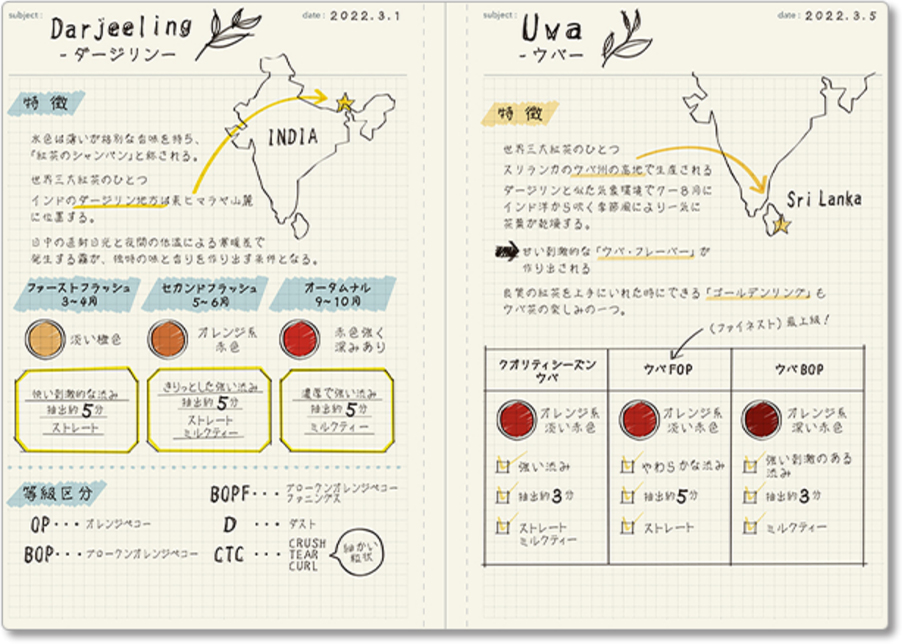 subject :
date : 2022.3.1
Darjeeling
- ダージリン ー
特徴
INDIA
水色は薄いが特別な香味を持ち、
「紅茶のシャンパン」と称される。
世界三大紅茶のひとつ
インドのダージリン地方は東ヒマラヤ山麓
に位置する。
日中の直射日光と夜間の低温による寒暖差で
発生する霧が、独特の味と香りを作り出す条件となる。
ファーストフラッシュ
3~4月
淡い橙色
快い刺激的な渋み
抽出約5分
ストレート
セカンドフラッシュ
5~6月
オレンジ系
赤色
きりっとした強い渋み
抽出約5分
ストレート
ミルクティー
オータムナル
9~10月
赤色強く
深みあり
濃厚で強い渋み
抽出約5分
ストレート
ミルクティー
等級区分
OP・・・オレンジペコー
BOP・・・ブロークンオレンジペコー
BOPF・・・ブロークンオレンジペコー
ファニングス
D ・・・ダスト
CTC ・・・CRUSH
TEAR
CURL
細かい
粒状
subject :
date : 2022.3.5
Uwa
- ウバー
特徴
Sri Lanka
世界三大紅茶のひとつ
スリランカのウバ州の高地で生産される
ダージリンと似た気象環境で7-8月に
インド洋から吹く季節風により一気に
茶葉が乾燥する。
甘い刺激的な「ウバ・フレーバー」が
作り出される
良質の紅茶を上手にいれた時にできる「ゴールデンリング」も
ウバ茶の楽しみの一つ。
(ファイネスト)最上級!
クオリティシーズン
ウバ
オレンジ系
淡い赤色
強い渋み
抽出約3分
ストレート
ミルクティー
ウバFOP
オレンジ系
淡い赤色
やわらかな渋み
抽出約5分
ストレート
ウバBOP
オレンジ系
深い赤色
強い刺激のある
渋み
抽出約3分
ミルクティー